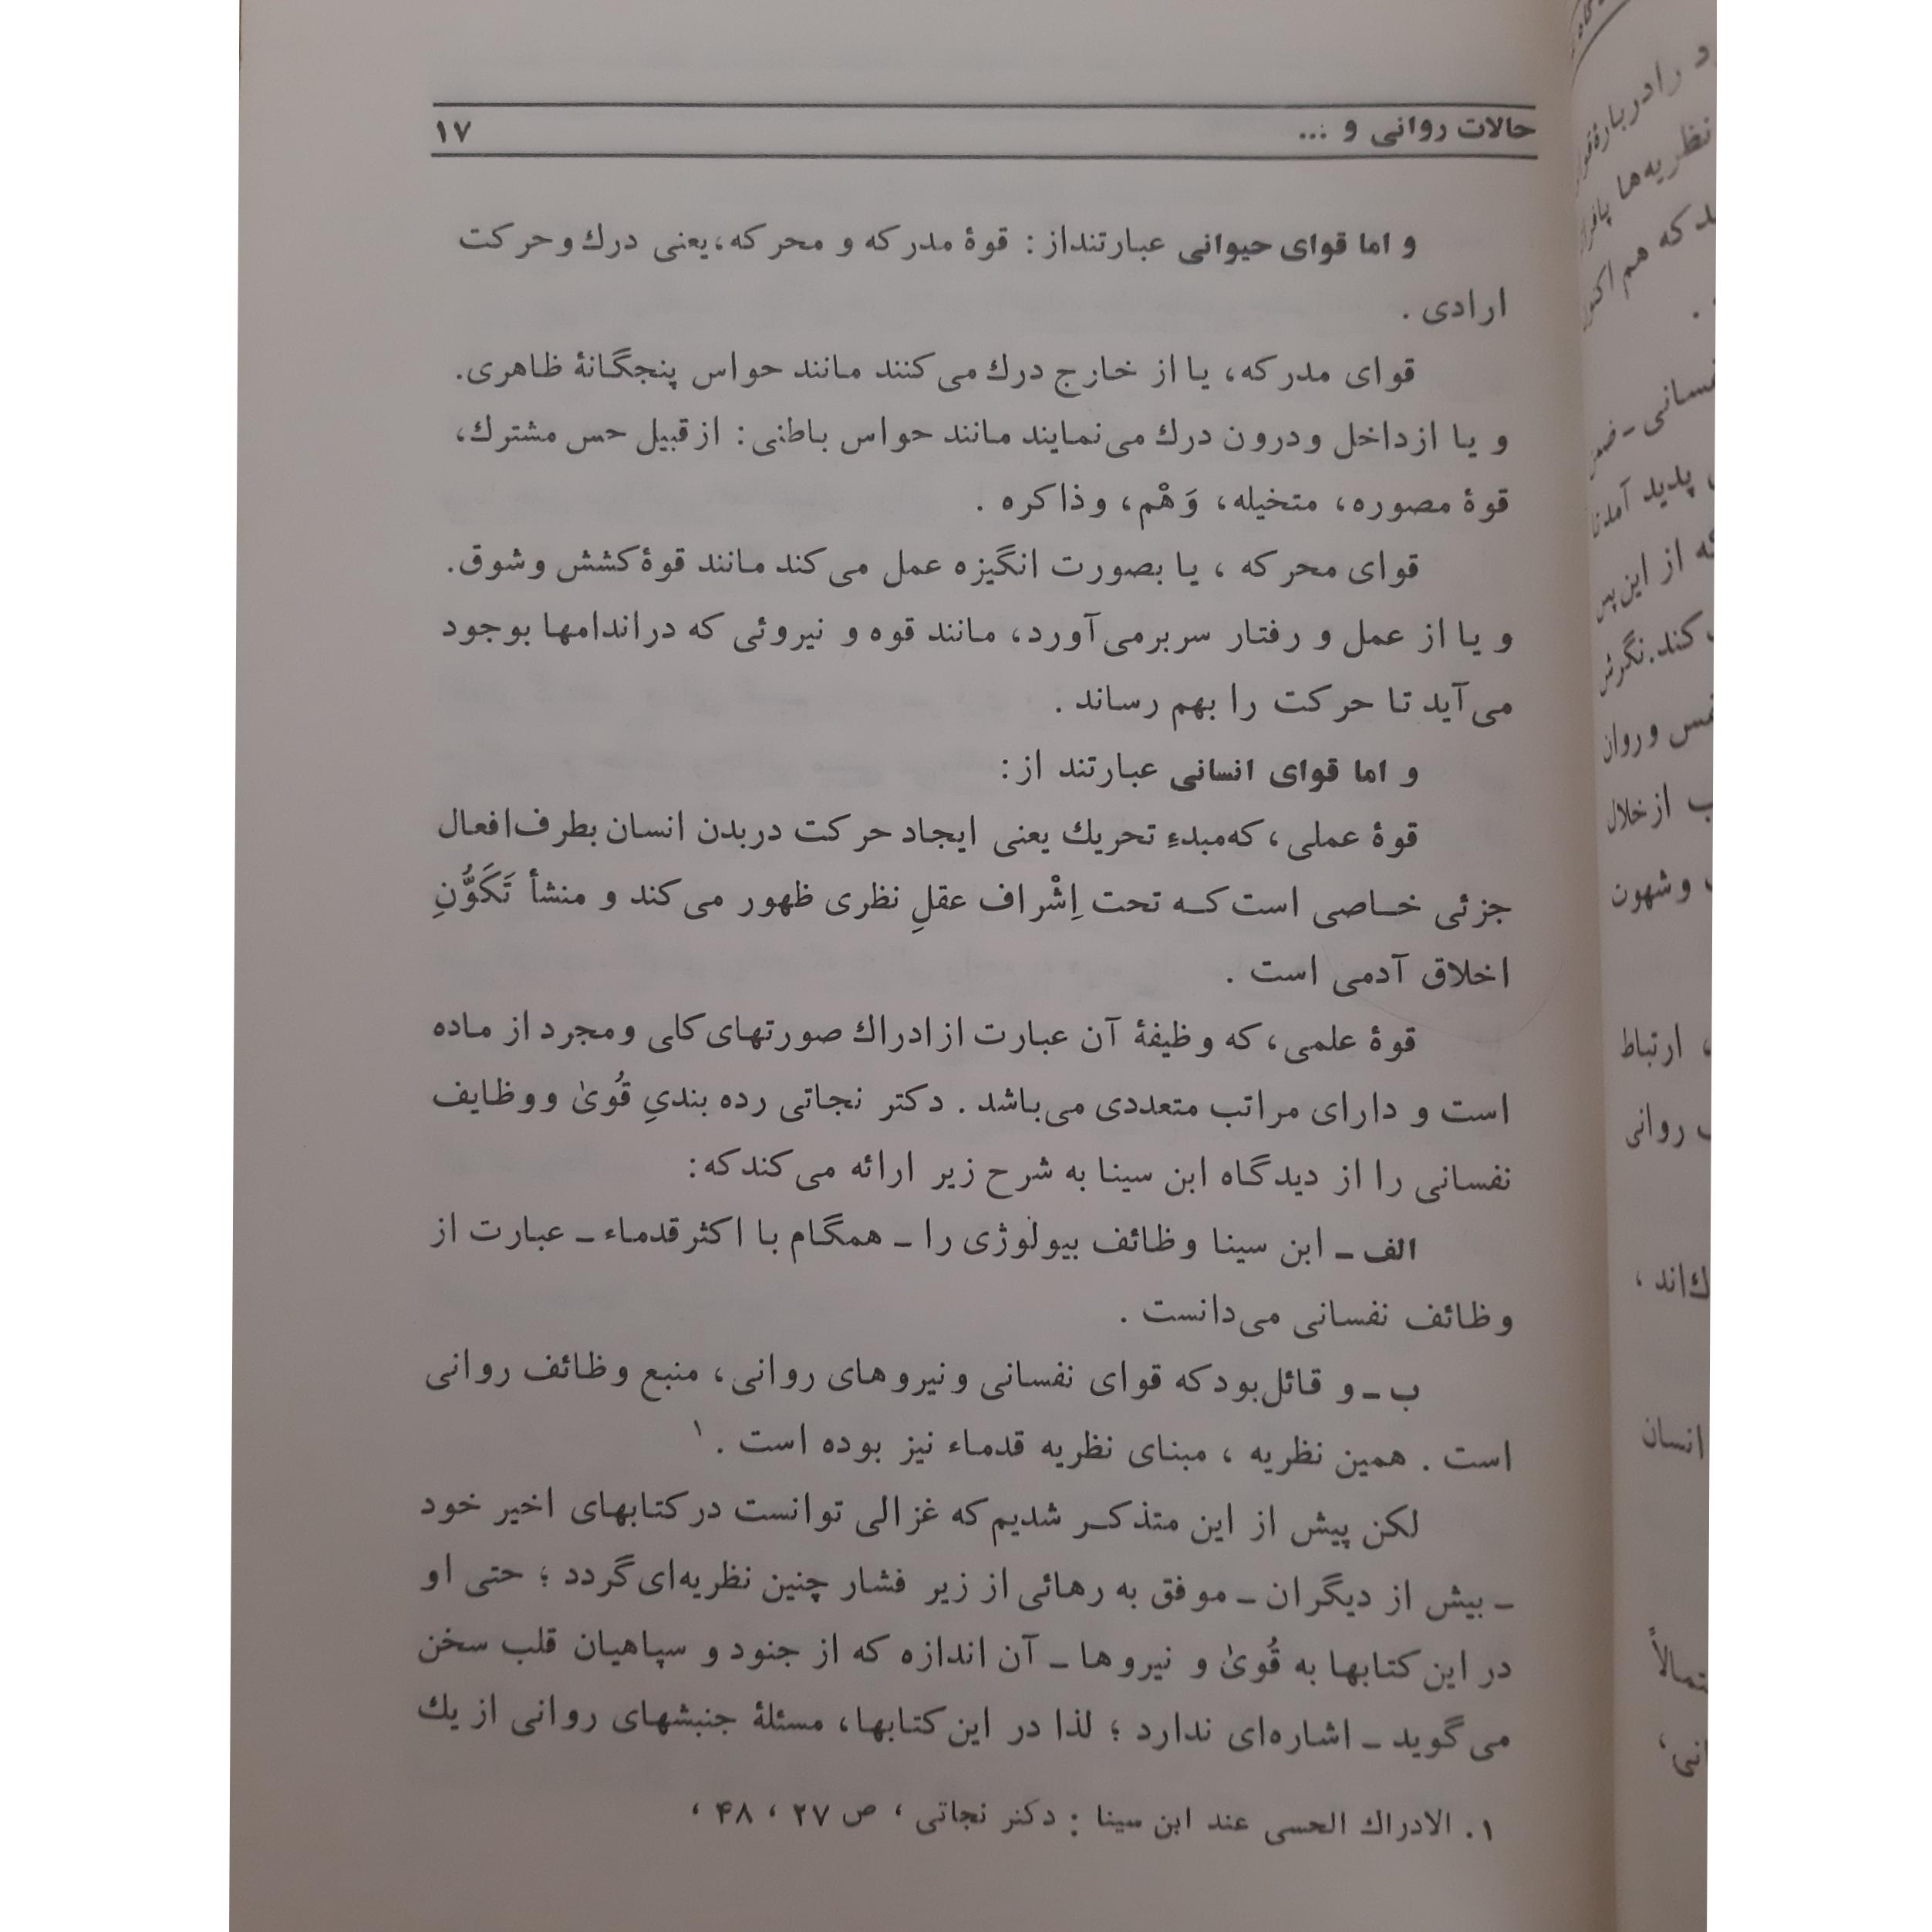 حالات روانی و ... ۱۷
و اما قوای حیوانی عبارتنداز : قوهٔ مدرکه و محرکه، یعنی درك و حرکت
ارادی .
قوای مدرکه، یا از خارج درك می‌کنند مانند حواس پنجگانهٔ ظاهری.
و یا ازداخل و درون درك می‌نمایند مانند حواس باطنی : ازقبیل حس مشترك،
قوهٔ مصوره، متخیله، وَهْم، و ذاکره .
قوای محرکه ، یا بصورت انگیزه عمل می‌کند مانند قوهٔ کشش و شوق.
و یا از عمل و رفتار سربرمی‌آورد، مانند قوه و نیروئی که دراندامها بوجود
می‌آید تا حرکت را بهم رساند .
و اما قوای انسانی عبارتند از :
قوهٔ عملی، که مبدءِ تحریك یعنی ایجاد حرکت دربدن انسان بطرف افعال
جزئی خاصی است که تحت اِشْراف عقلِ نظری ظهور می‌کند و منشأ تَکَوُّنِ
اخلاق آدمی است .
قوهٔ علمی، که وظیفهٔ آن عبارت از ادراك صورتهای کلی و مجرد از ماده
است و دارای مراتب متعددی می‌باشد . دکتر نجاتی رده بندیِ قُویٰ و وظایف
نفسانی را از دیدگاه ابن سینا به شرح زیر ارائه می‌کند که :
الف ـ ابن سینا وظائف بیولوژی را ـ همگام با اکثر قدماء ـ عبارت از
وظائف نفسانی می‌دانست .
ب ـ و قائل بود که قوای نفسانی و نیروهای روانی، منبع وظائف روانی
است . همین نظریه ، مبنای نظریه قدماء نیز بوده است .۱
لکن پیش از این متذکر شدیم که غزالی توانست در کتابهای اخیر خود
ـ بیش از دیگران ـ موفق به رهائی از زیر فشار چنین نظریه‌ای گردد ؛ حتی او
در این کتابها به قُویٰ و نیروها ـ آن اندازه که از جنود و سپاهیان قلب سخن
می‌گوید ـ اشاره‌ای ندارد ؛ لذا در این کتابها، مسئلهٔ جنبشهای روانی از یك
۱. الادراك الحسی عند ابن سینا : دکتر نجاتی ، ص ۲۷ ، ۴۸ ،
را دربارهٔ
نظریه‌ها
که هم
پدید
از این پس
کند. نگرش
و روان
از خلال
و شهوت
، ارتباط
روانی
انسان